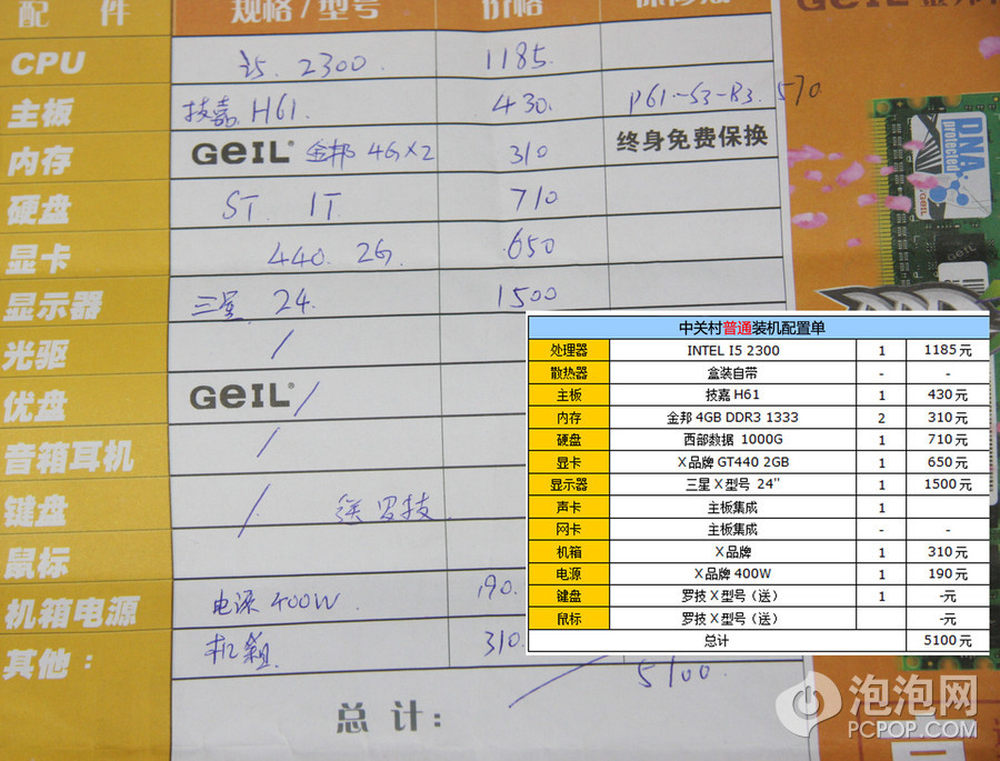 配 件 规格/型号 价格
CPU i5 2300 1185
主板 技嘉 H61. 430. P61-S3-B3. 570
内存 GeIL 金邦 4G×2 310 终身免费保换
硬盘 ST 1T 710
显卡 440. 2G. 650
显示器 三星 24. 1500
光驱 /
优盘 GeIL /
音箱耳机 /
键盘 / 送 罗技
鼠标
机箱电源 电源 400W 190.
其他： 机箱. 310.
总 计： 5100
GeIL
DNA
protected
GeIL
中关村普通装机配置单
处理器 INTEL I5 2300 1 1185元
散热器 盒装自带 - -
主板 技嘉 H61 1 430元
内存 金邦 4GB DDR3 1333 2 310元
硬盘 西部数据 1000G 1 710元
显卡 X品牌 GT440 2GB 1 650元
显示器 三星 X型号 24" 1 1500元
声卡 主板集成 1
网卡 主板集成 - -
机箱 X品牌 1 310元
电源 X品牌 400W 1 190元
键盘 罗技 X型号（送） 1 -元
鼠标 罗技 X型号（送） -元
总计 5100元
泡泡网
PCPOP.COM